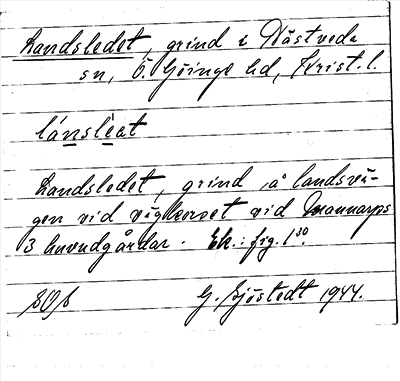 Landsledet, grind i Västveda
sn, Ö. Göinge hd, Krist. l.
lánslèat
Landsledet, grind å landsvä-
gen vid vägkorset vid Mannarps
3 huvudgårdar. Ek.: fig. 1
G. Sjöstedt 1944.